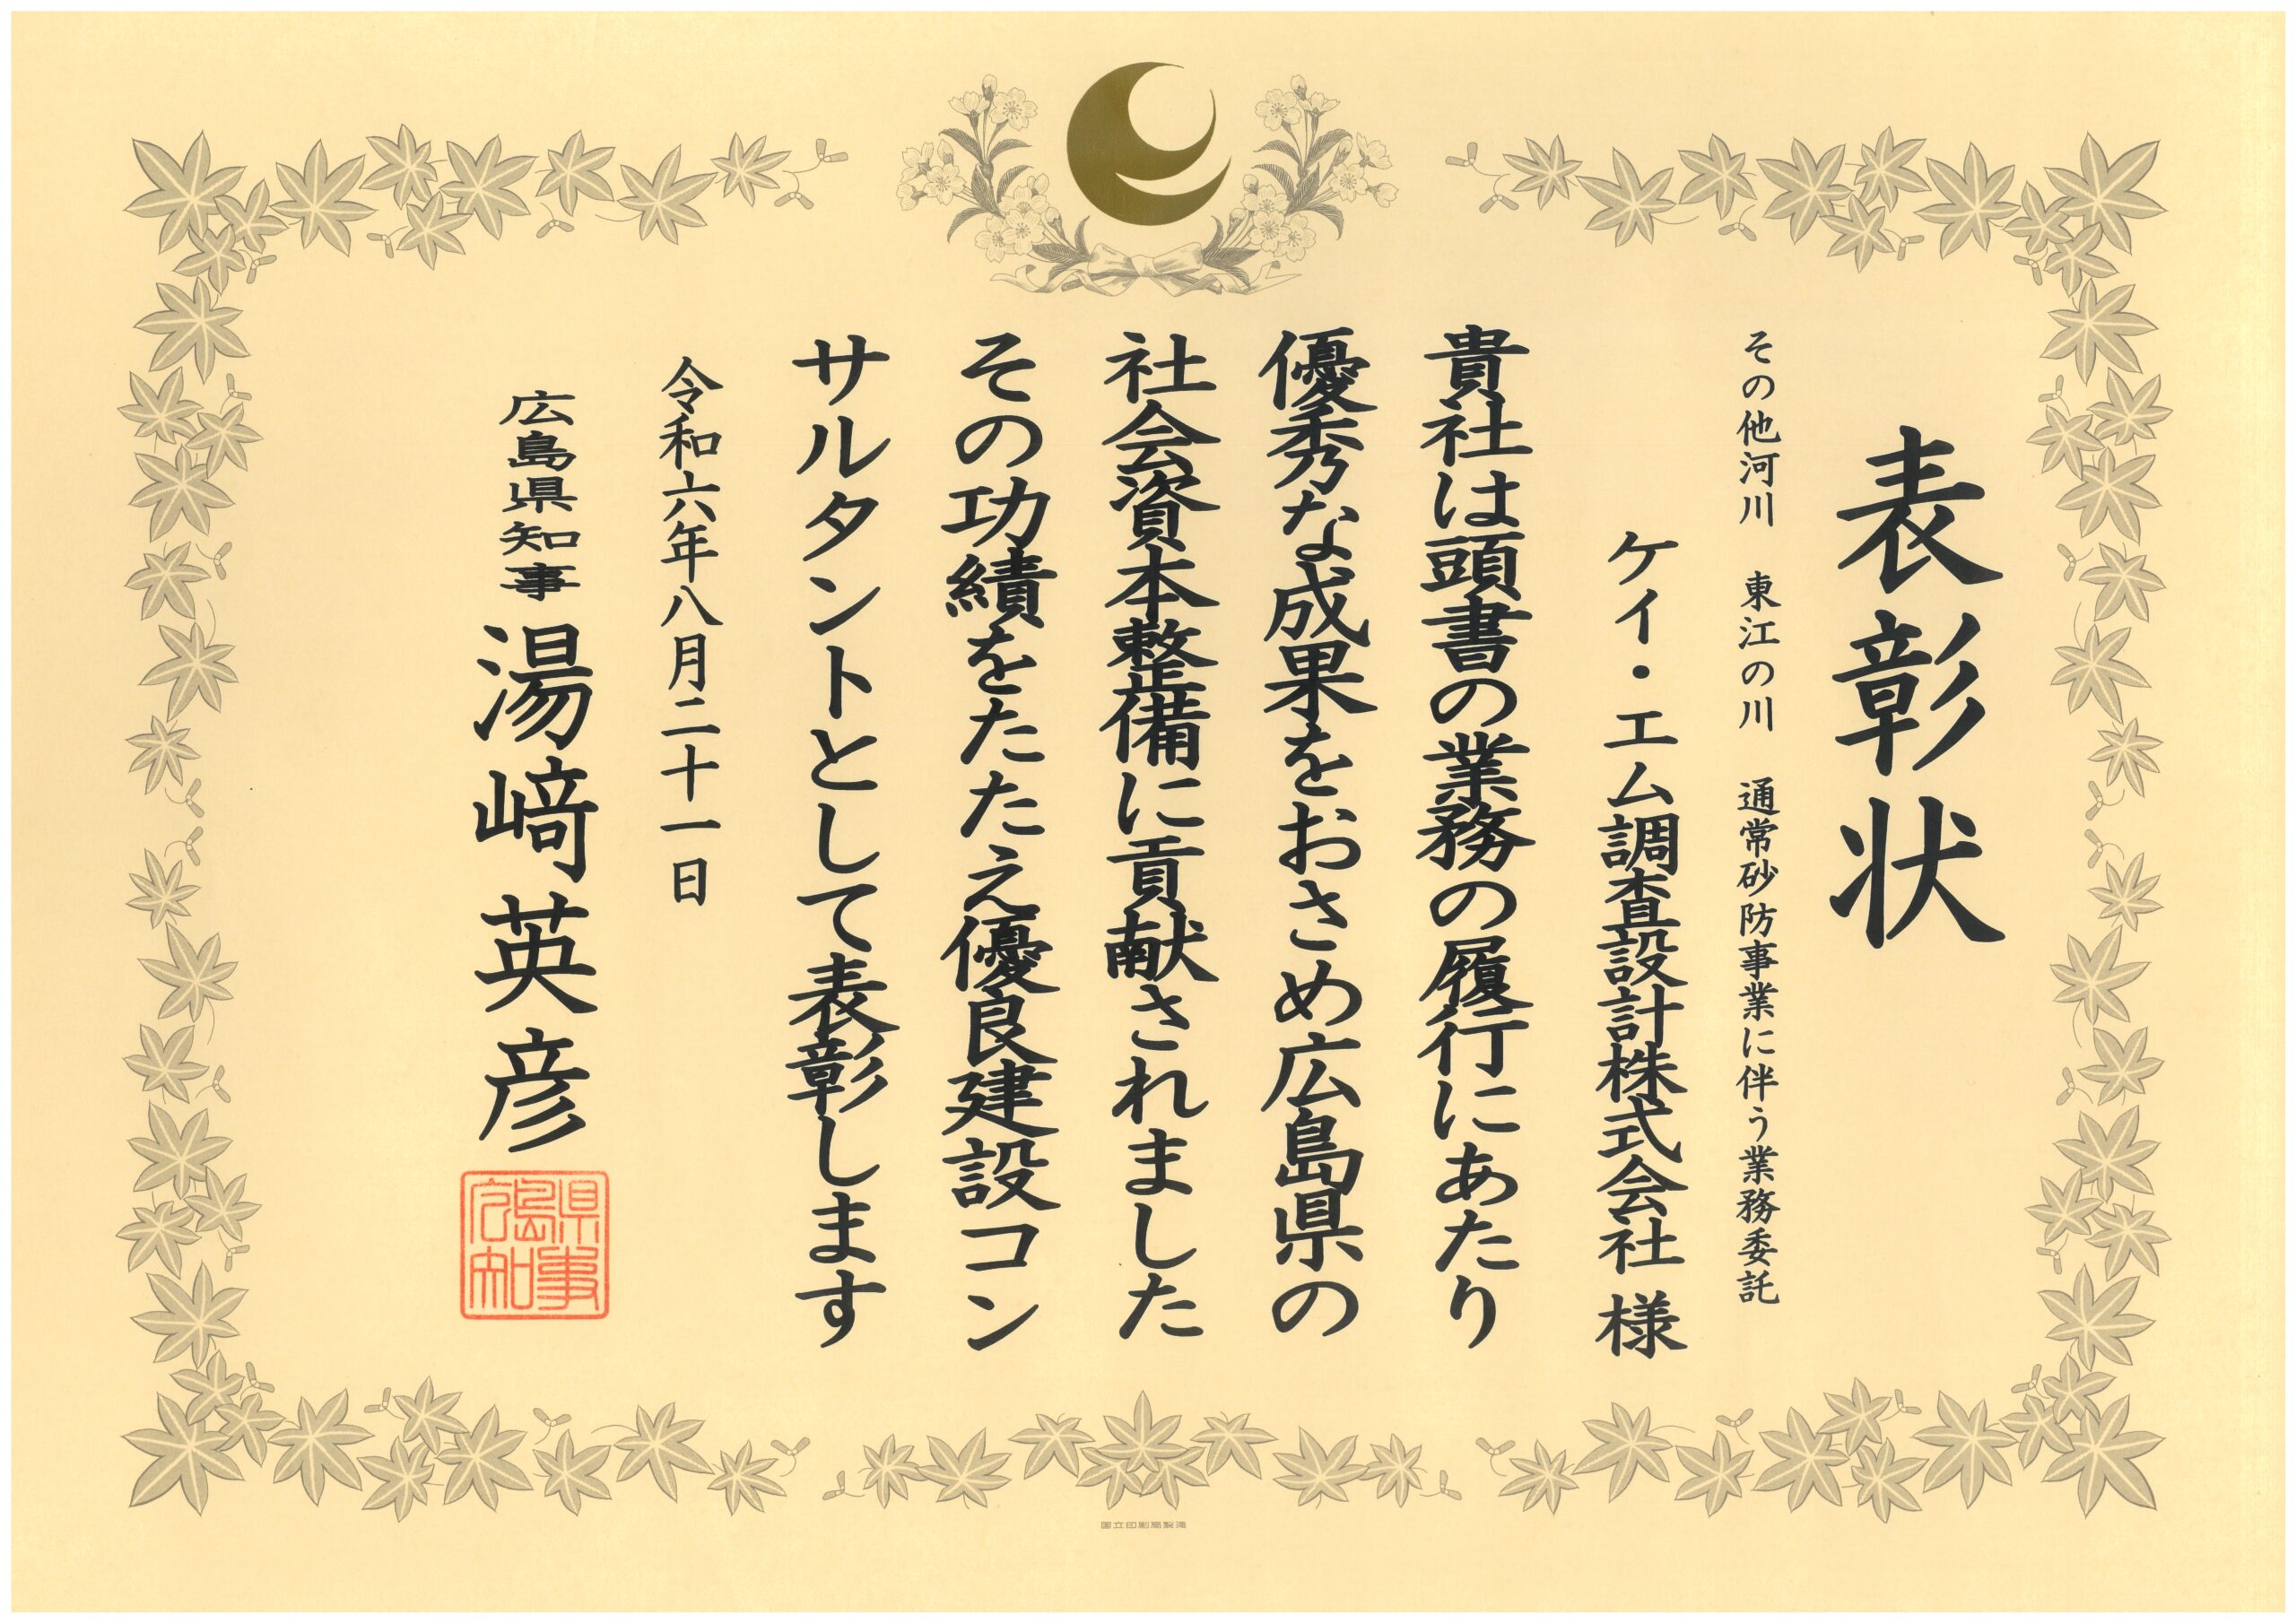 表彰状
その他河川　東江の川　通常砂防事業に伴う業務委託
ケイ・エム調査設計株式会社 様
貴社は頭書の業務の履行にあたり
優秀な成果をおさめ広島県の
社会資本整備に貢献されました
その功績をたたえ優良建設コン
サルタントとして表彰します
令和六年八月二十一日
広島県知事 湯﨑英彦
広島県知事
国立印刷局製造